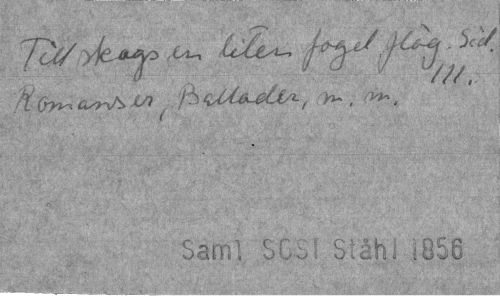 Till skogs en liten fogel flög. Sid.
Romanser, Ballader, m. m. 111.
Saml SCSI Ståhl 1856